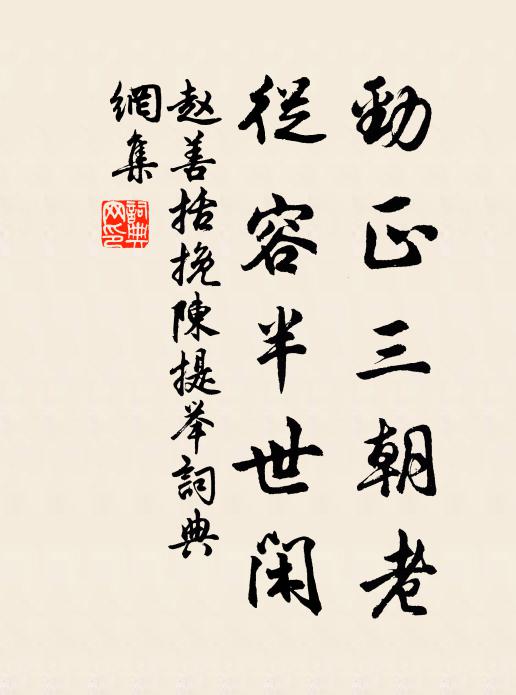 勁正三朝老
從容半世閑
赵善括挽陳提举詞典
網集
詞典
网印